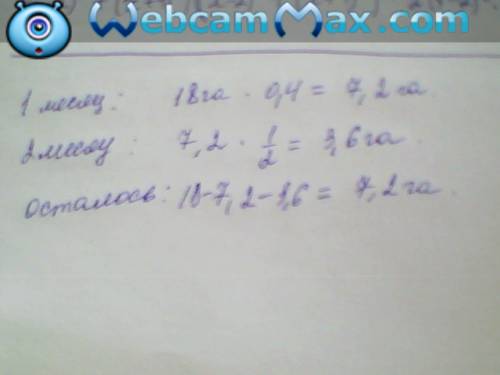 WebcamMax.com
1 месяц: 18га · 0,4 = 7,2 га.
2 месяц: 7,2 · 1/2 = 3,6 га
осталось: 18-7,2-3,6 = 7,2 га.